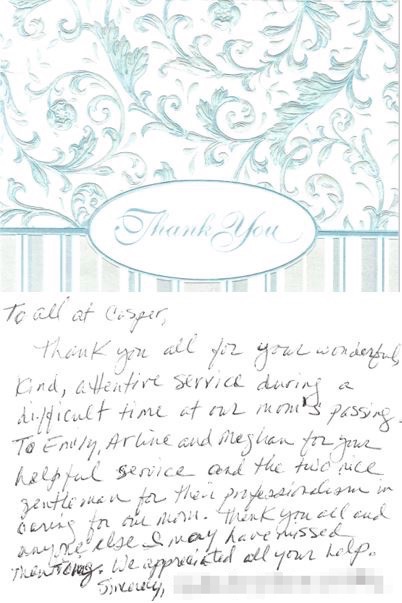 Thank You
To all at Casper,
Thank you all for your wonderful,
kind, attentive service during a
difficult time at our mom's passing.
To Emily, Arline and Meghan for your
helpful service and the two nice
gentleman for their professionalism in
caring for our mom. Thank you all and
anyone else I may have missed
mentioning. We appreciated all your help.
Sincerely,